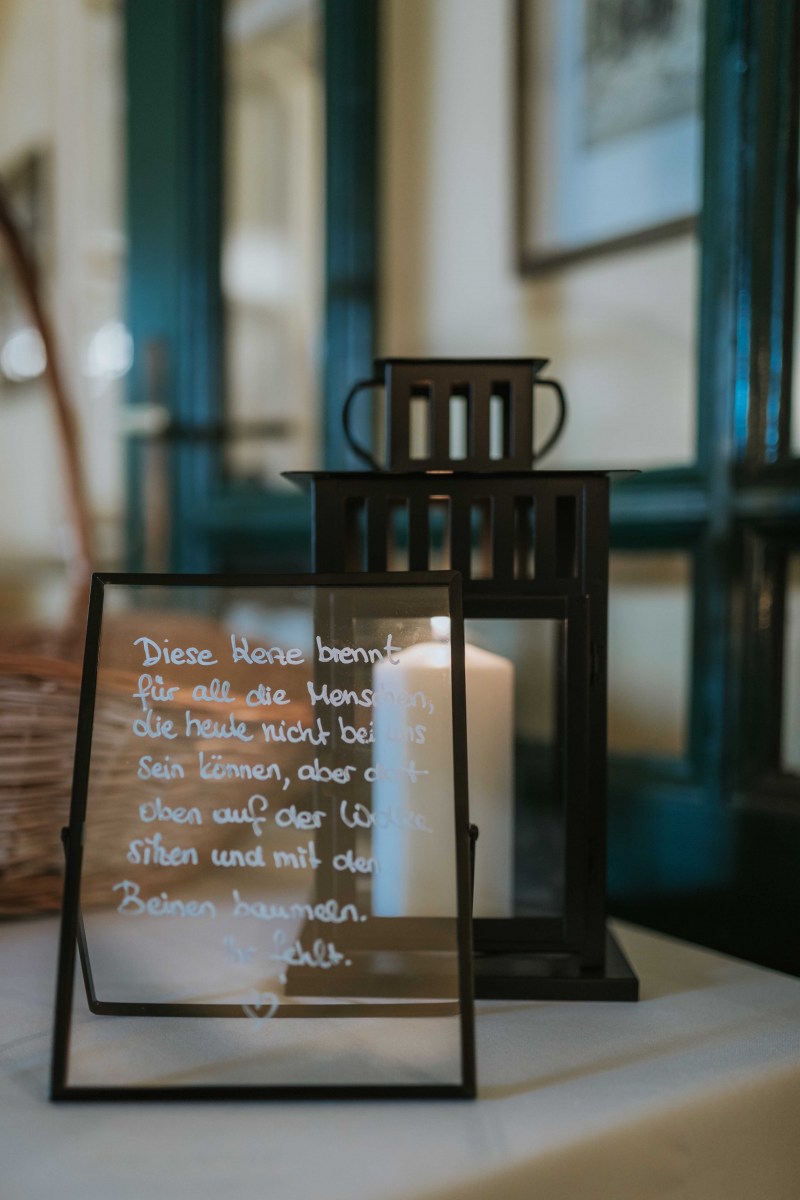 Diese Kerze brennt
für all die Menschen,
die heute nicht bei uns
sein können, aber dort
oben auf der Wolke
sitzen und mit den
Beinen baumeln.
Ihr fehlt.